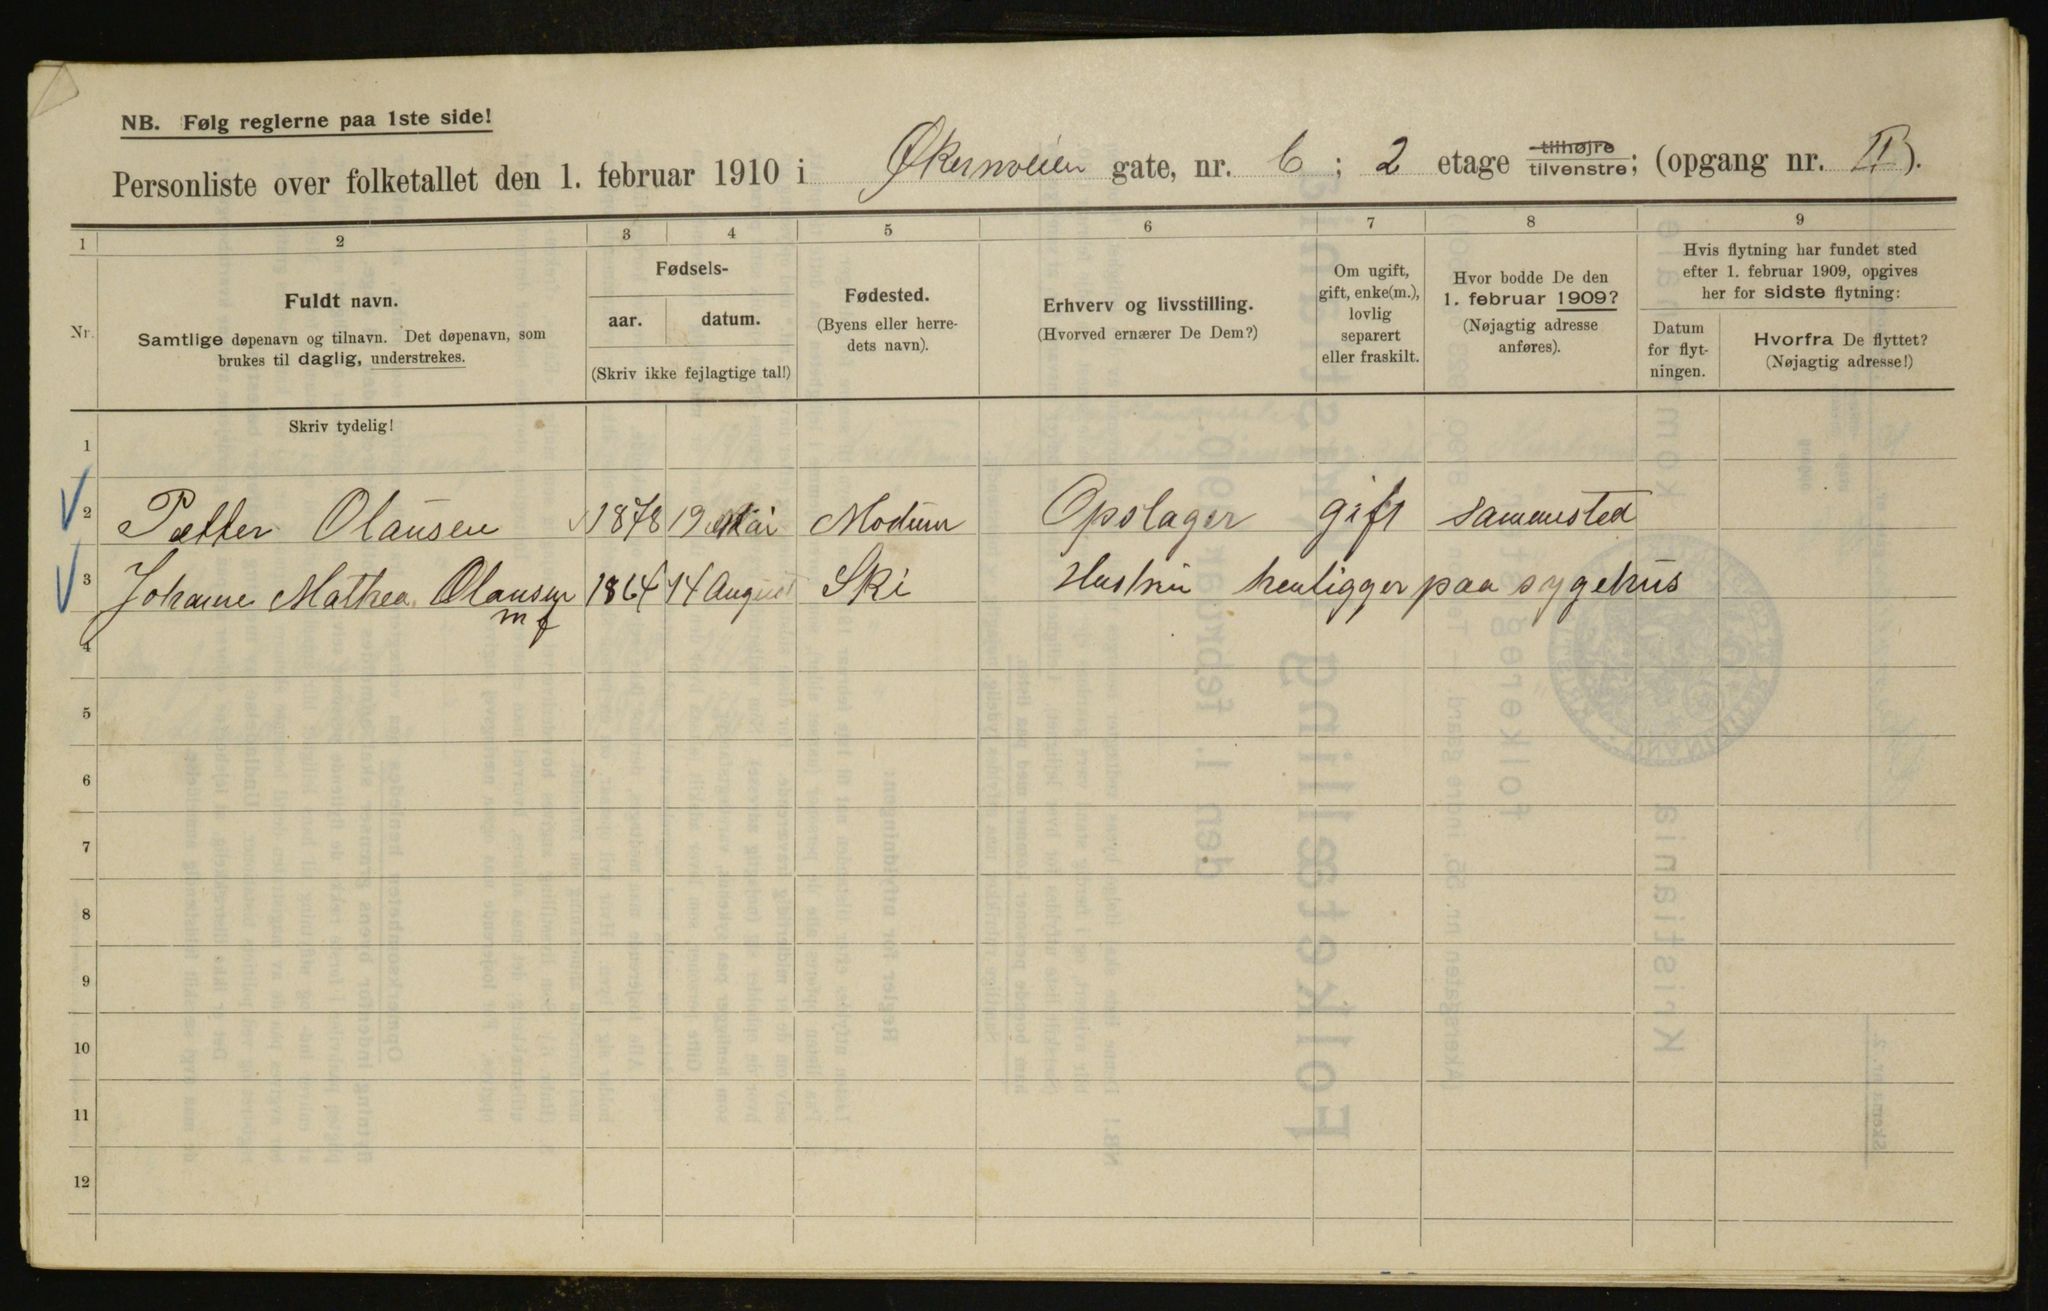 NB. Følg reglerne paa 1ste side!
Personliste over folketallet den 1. februar 1910 i Økernveien gate, nr. 6 ; 2 etage tilhøjre tilvenstre; (opgang nr. II).
1 2 3 4 5 6 7 8 9
Nr.
Fuldt navn.
Samtlige døpenavn og tilnavn. Det døpenavn, som
brukes til daglig, understrekes.
Fødsels-
aar. datum.
(Skriv ikke fejlagtige tal!)
Fødested.
(Byens eller herre-
dets navn).
Erhverv og livsstilling.
(Hvorved ernærer De Dem?)
Om ugift,
gift, enke(m.),
lovlig
separert
eller fraskilt.
Hvor bodde De den
1. februar 1909?
(Nøjagtig adresse
anføres).
Hvis flytning har fundet sted
efter 1. februar 1909, opgives
her for sidste flytning:
Datum
for flyt-
ningen.
Hvorfra De flyttet?
(Nøjagtig adresse!)
Skriv tydelig!
1
2 Petter Olausen 1878 19 Mai Modum Opslager gift Sammested
3 Johanne Mathea Olausen 1864 14 August Ski Hustru henligger paa sygehus
mf
4
5
6
7
8
9
10
11
12